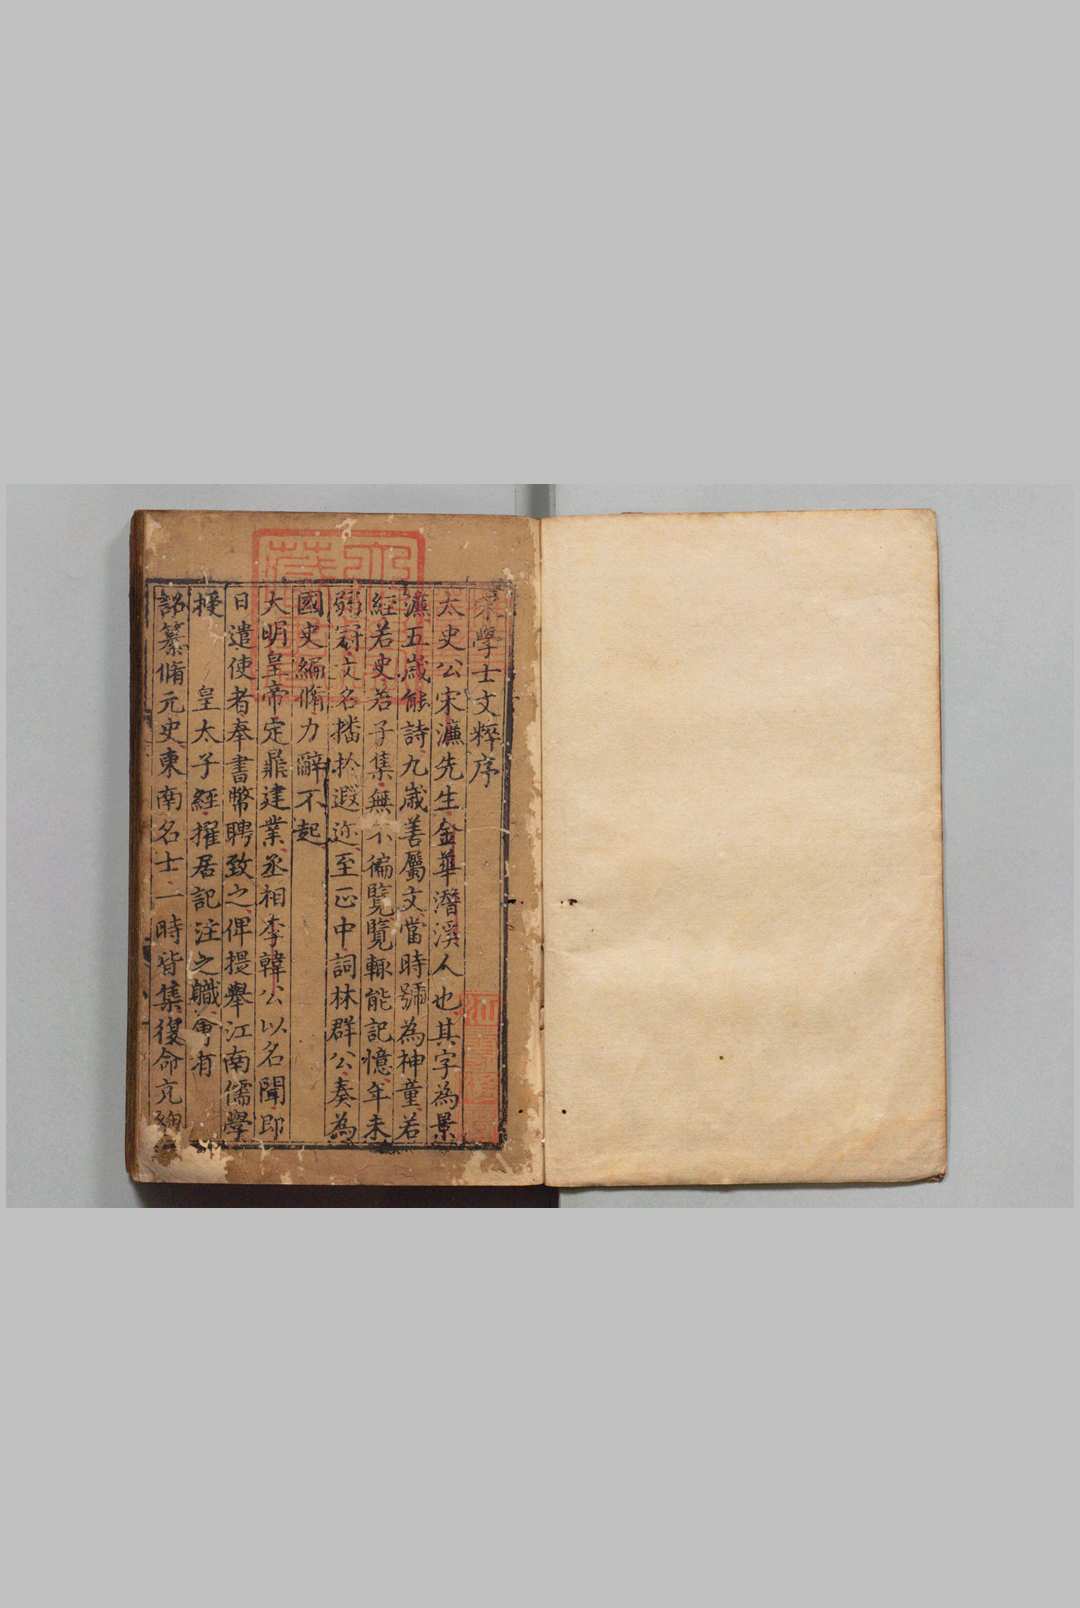 宋學士文粹序
太史公宋濂先生金華潛溪人也其字為景
濂五歲能詩九歲善屬文當時號為神童若
經若史若子集無不徧覽覽輒能記憶年未
弱冠文名播扵遐迩至正中詞林群公奏為
國史編脩力辭不起
大明皇帝定鼎建業丞相李韓公以名聞即
日遣使者奉書幣聘致之俾提舉江南儒學
授 皇太子經擢居記注之職會有
詔纂脩元史東南名士一時皆集復命充緫